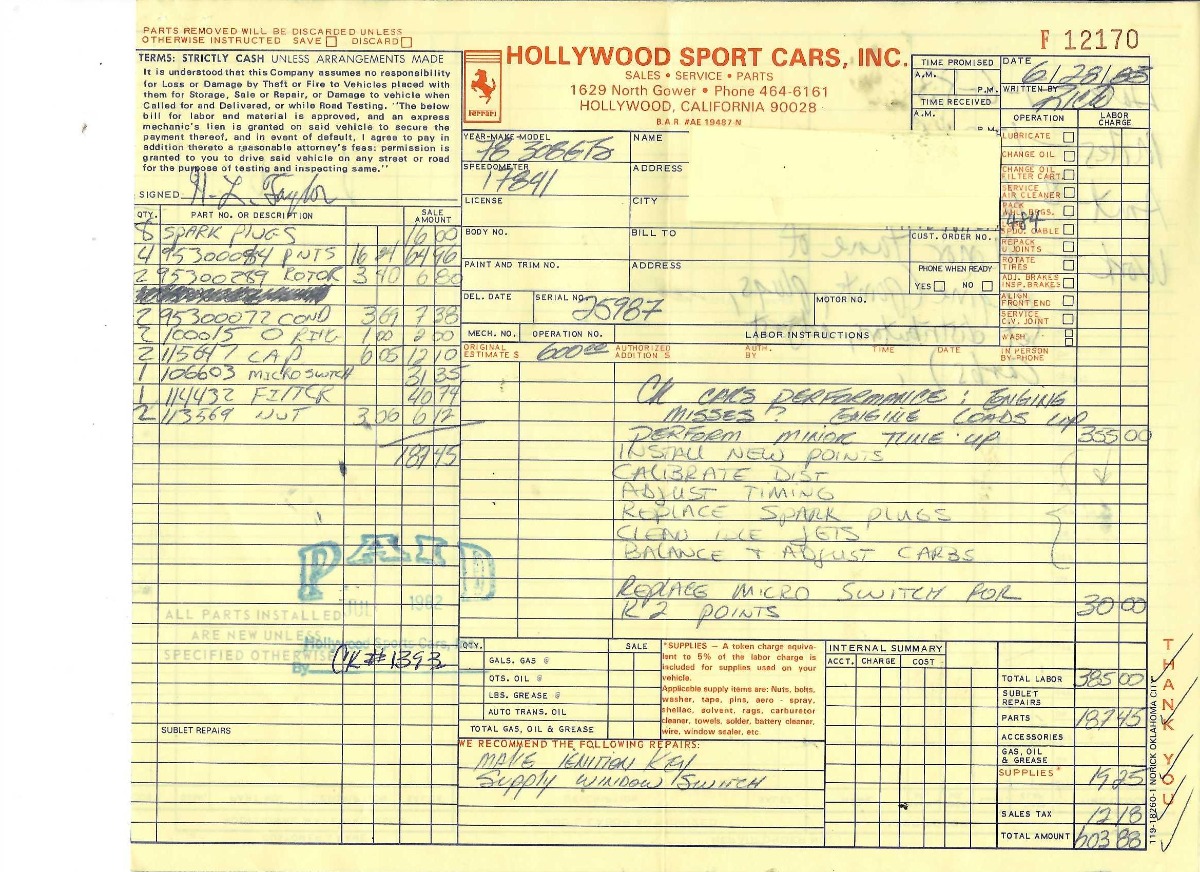 PARTS REMOVED WILL BE DISCARDED UNLESS
OTHERWISE INSTRUCTED SAVE □ DISCARD □
TERMS: STRICTLY CASH UNLESS ARRANGEMENTS MADE
It is understood that this Company assumes no responsibility
for Loss or Damage by Theft or Fire to Vehicles placed with
them for Storage, Sale or Repair, or Damage to vehicle when
Called for and Delivered, or while Road Testing. "The below
bill for labor and material is approved, and an express
mechanic's lien is granted on said vehicle to secure the
payment thereof, and in event of default, I agree to pay in
addition thereto a reasonable attorney's fees: permission is
granted to you to drive said vehicle on any street or road
for the purpose of testing and inspecting same."
SIGNED H. L. Taylor
Ferrari
HOLLYWOOD SPORT CARS, INC.
SALES • SERVICE • PARTS
1629 North Gower • Phone 464-6161
HOLLYWOOD, CALIFORNIA 90028
B.A.R. #AE 19487 N
F 12170
TIME PROMISED
A.M.
P.M.
TIME RECEIVED
A.M.
P.M.
DATE 6/28/83
WRITTEN BY RICO
YEAR-MAKE-MODEL 78 308GTS
SPEEDOMETER 17841
LICENSE
NAME
ADDRESS
CITY
BODY NO.
BILL TO
PAINT AND TRIM NO.
ADDRESS
484
CUST. ORDER NO.
PHONE WHEN READY
YES □ NO □
DEL. DATE
SERIAL NO. 25987
MOTOR NO.
MECH. NO. OPERATION NO. LABOR INSTRUCTIONS
ORIGINAL ESTIMATE $ 600.00 AUTHORIZED ADDITIONS $ AUTH. BY TIME DATE IN PERSON BY-PHONE
OPERATION LABOR CHARGE
LUBRICATE
CHANGE OIL
CHANGE OIL FILTER CART.
SERVICE AIR CLEANER
PACK WHL. BRGS.
SPDO. CABLE
REPACK U JOINTS
ROTATE TIRES
ADJ. BRAKES INSP. BRAKES
ALIGN FRONT END
SERVICE C.V. JOINT
WASH
QTY. PART NO. OR DESCRIPTION SALE AMOUNT
8 SPARK PLUGS 16 00
4 95300084 PNTS 16 24 64 96
2 95300289 ROTOR 3 40 6 80
2 95300072 COND 3 69 7 38
2 100015 O RING 1 00 2 00
2 115617 CAP 6 05 12 10
1 106603 MICROSWTCH 31 35
1 114432 FILTER 40 74
2 113569 NUT 3 06 6 12
187 45
CK CARS PERFORMANCE: ENGINE
MISSES? ENGINE LOADS UP
PERFORM MINOR TUNE-UP 355 00
INSTALL NEW POINTS
CALIBRATE DIST
ADJUST TIMING
REPLACE SPARK PLUGS
CLEAN IDLE JETS
BALANCE + ADJUST CARBS
REPLACE MICRO SWITCH FOR
R 2 POINTS 30 00
PAID
JUL 1982
Hollywood Sports Cars, Inc.
By CK # 1393
ALL PARTS INSTALLED
ARE NEW UNLESS
SPECIFIED OTHERWISE
SUBLET REPAIRS
QTY. SALE
GALS. GAS @
QTS. OIL @
LBS. GREASE @
AUTO TRANS. OIL
TOTAL GAS, OIL & GREASE
*SUPPLIES — A token charge equiva-
lent to 5% of the labor charge is
included for supplies used on your
vehicle.
Applicable supply items are: Nuts, bolts,
washer, tape, pins, aero - spray,
shellac, solvent, rags, carburetor
cleaner, towels, solder, battery cleaner,
wire, window sealer, etc.
WE RECOMMEND THE FOLLOWING REPAIRS:
MAKE IGNITION KEY
Supply WINDOW SWITCH
INTERNAL SUMMARY
ACCT. CHARGE COST
TOTAL LABOR 385 00
SUBLET REPAIRS
PARTS 187 45
ACCESSORIES
GAS, OIL & GREASE
SUPPLIES* 19 25
SALES TAX 12 18
TOTAL AMOUNT 603 88
119-18260-1 NORICK OKLAHOMA CITY
THANK YOU